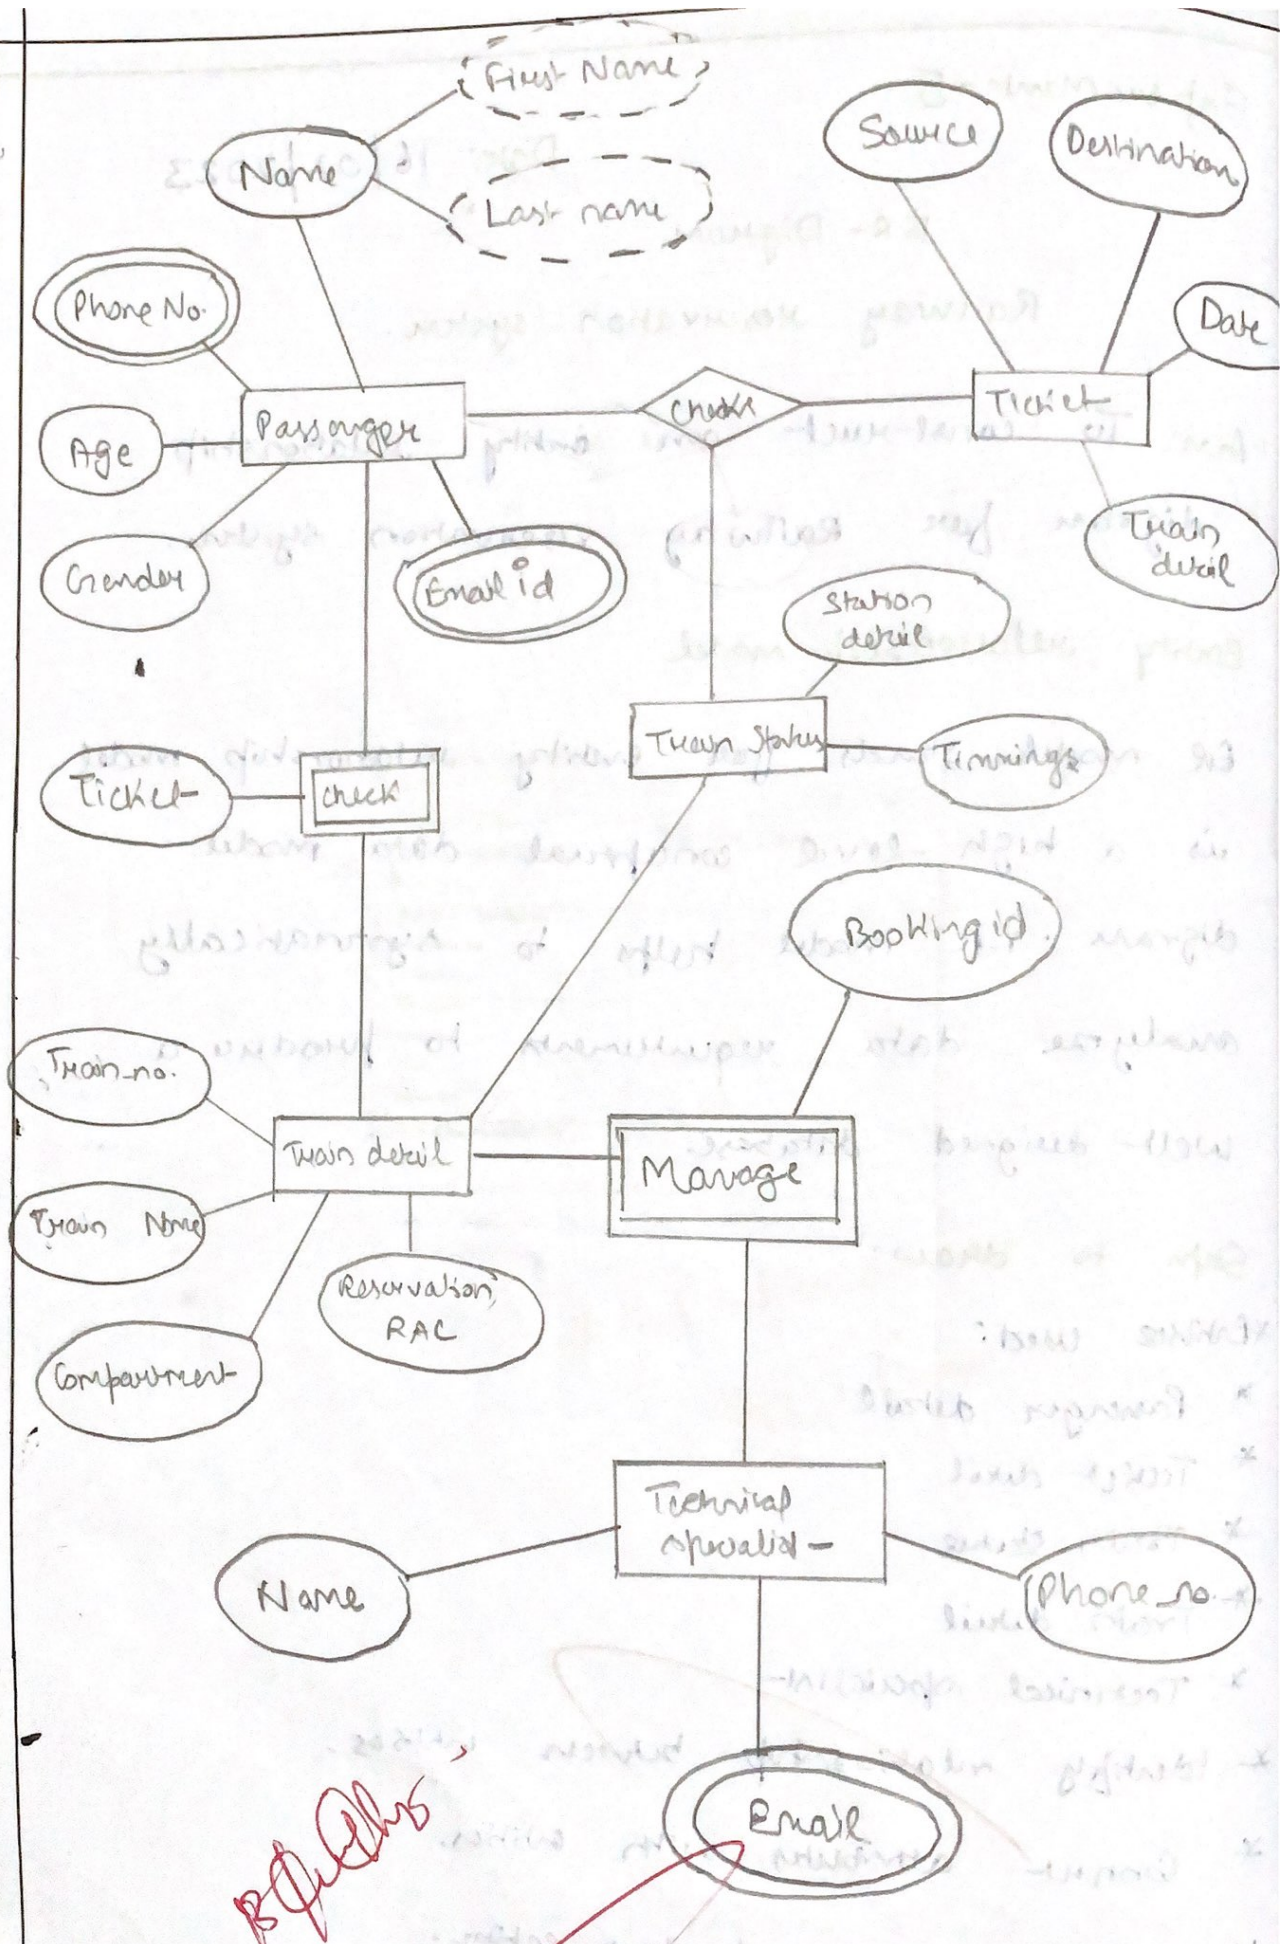 First Name
Name
Last name
Source
Destination
Phone No.
Date
Passonger
checks
Ticket
Age
Gender
Email id
Train
detail
Station
detail
Train status
Timmings
Ticket
check
Booking id
Train_no.
Train detail
Manage
Train Name
Reservation,
RAC
Compartment
Technical
specialist
Name
Phone_no.
Email